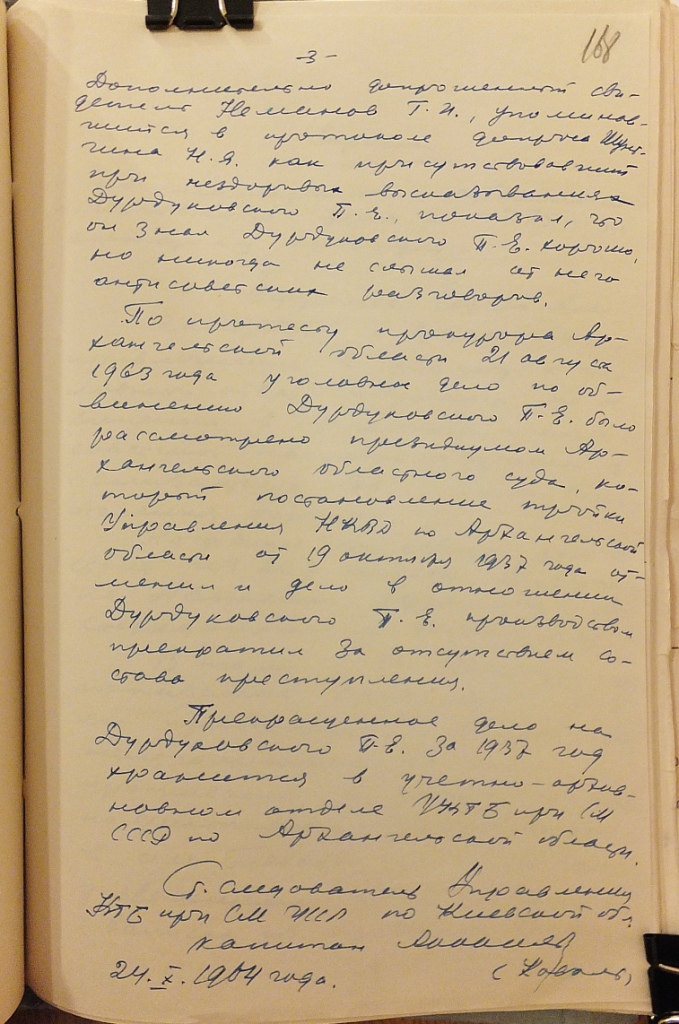 168
-3-
Дополнительно допрошенный сви-
детель Неманов Г.И., упоминав-
шийся в протоколе допроса
Н.Я. как присутствовавший
при нездоровых высказываниях
Дурдуковского П.Е., показал, что
он знал Дурдуковского П.Е. хорошо,
но никогда не слышал от него
антисоветских разговоров.
По протесту прокурора Ар-
хангельской области 21 августа
1963 года уголовное дело по об-
винению Дурдуковского П.Е. было
рассмотрено президиумом Ар-
хангельского областного суда, ко-
торый постановление тройки
Управления НКВД по Архангельской
области от 19 октября 1937 года от-
менил и дело в отношении
Дурдуковского П.Е. производством
прекратил за отсутствием со-
става преступления.
Прекращенное дело на
Дурдуковского П.Е. за 1937 год
хранится в учетно-архив-
ном отделе УКГБ при СМ
СССР по Архангельской области.
Ст. следователь Управления
КГБ при СМ УССР по Киевской обл.
капитан
(Коваль)
24.X.1964 года.